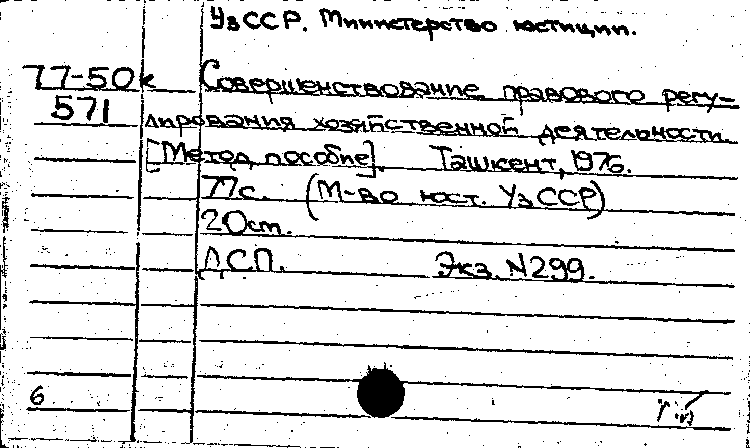 УзССР. Министерство юстиции.
77-50к Совершенствование правового регу-
571 лирования хозяйственной деятельности.
[Метод. пособие]. Ташкент, 1976.
77с. (М-во юст. УзССР)
20см.
ДСП. Экз. N299.
6